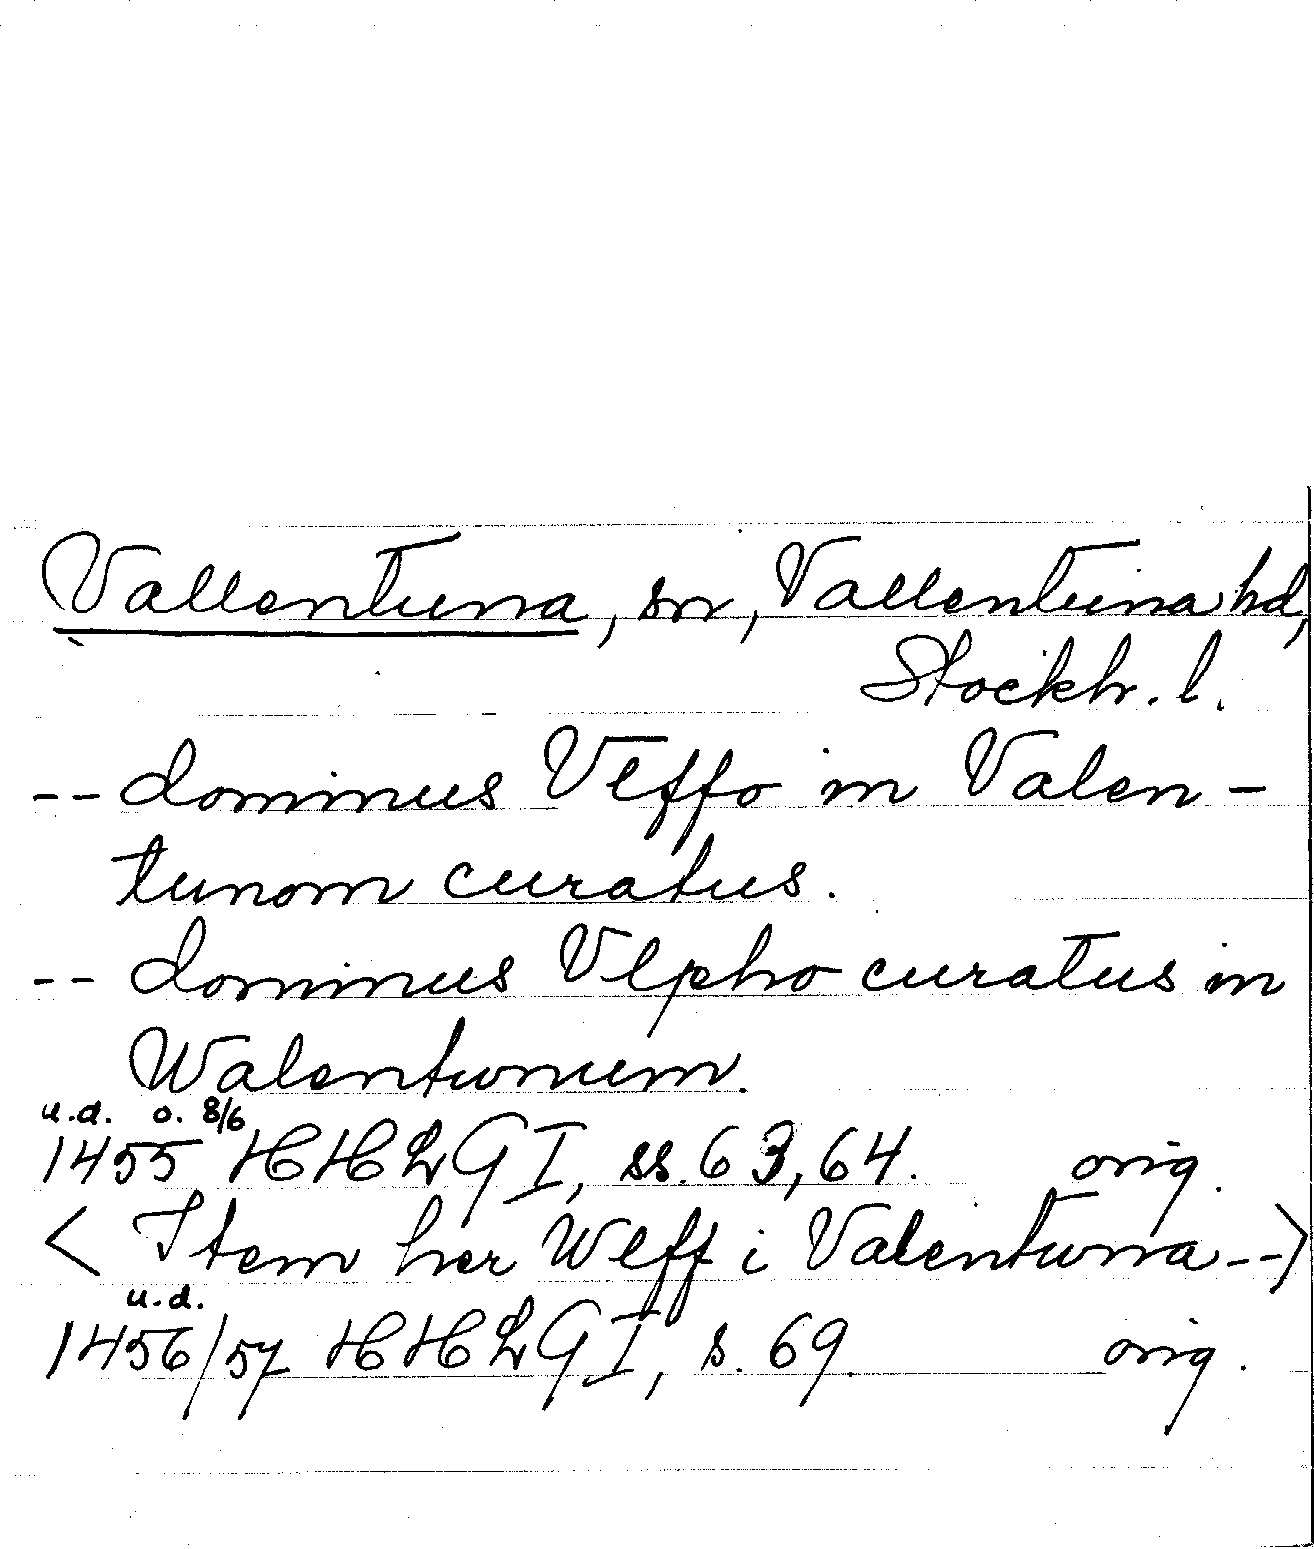 Vallentuna, sn, Vallentuna hd,
Stockh. l.
-- dominus Vlffo in Valen-
tunom curatus.
-- dominus Vlpho curatus in
Walentunum.
u.d. o. 8/6
1455 HHLG I, ss. 63, 64. orig.
< Item her Wlff i Valentuna -->
u.d.
1456/57 HHLG I, s. 69. orig.